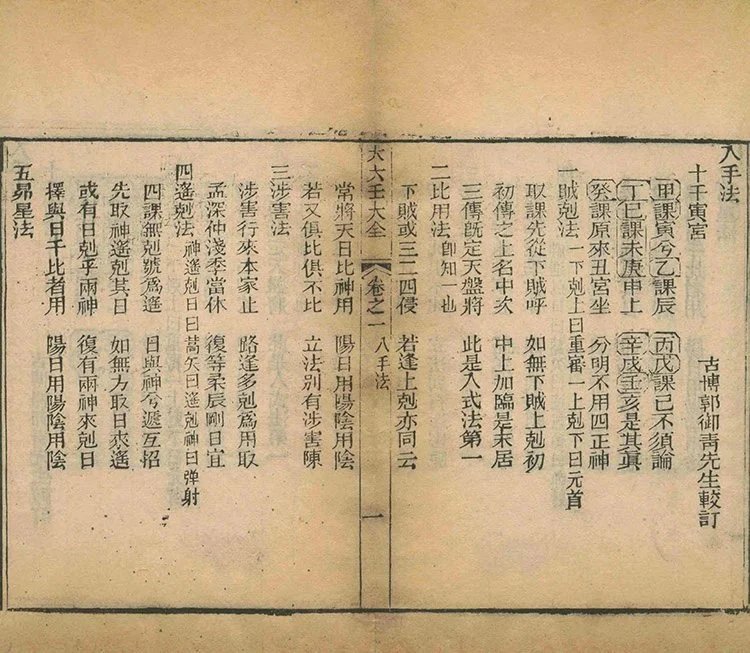 入手法
十干寅宮 古博郭御青先生較訂
甲課寅兮乙課辰 丙戊課巳不須論
丁巳課未庚申上 辛戌壬亥是其眞
癸課原來丑宮坐 分明不用四正神
一賊剋法 一下剋上曰重審一上剋下曰元首
取課先從下賊呼 如無下賊上剋初
初傳之上名中次 中上加臨是末居
三傳旣定天盤將 此是入式法第一
二比用法 卽知一也
下賊或三二四侵 若逢上剋亦同云
大六壬大全 卷之一 入手法 一
常將天日比神用 陽日用陽陰用陰
若又俱比俱不比 立法別有涉害陳
三涉害法
涉害行來本家止 路逢多剋爲用取
孟深仲淺季當休 復等柔辰剛日宜
四遙剋法 神遙剋日曰蒿矢日遙剋神曰弹射
四課無剋號爲遙 日與神兮遞互招
先取神遙剋其日 如無方取日來遙
或有日剋乎兩神 復有兩神來剋日
擇與日干比者用 陽日用陽陰用陰
五昴星法